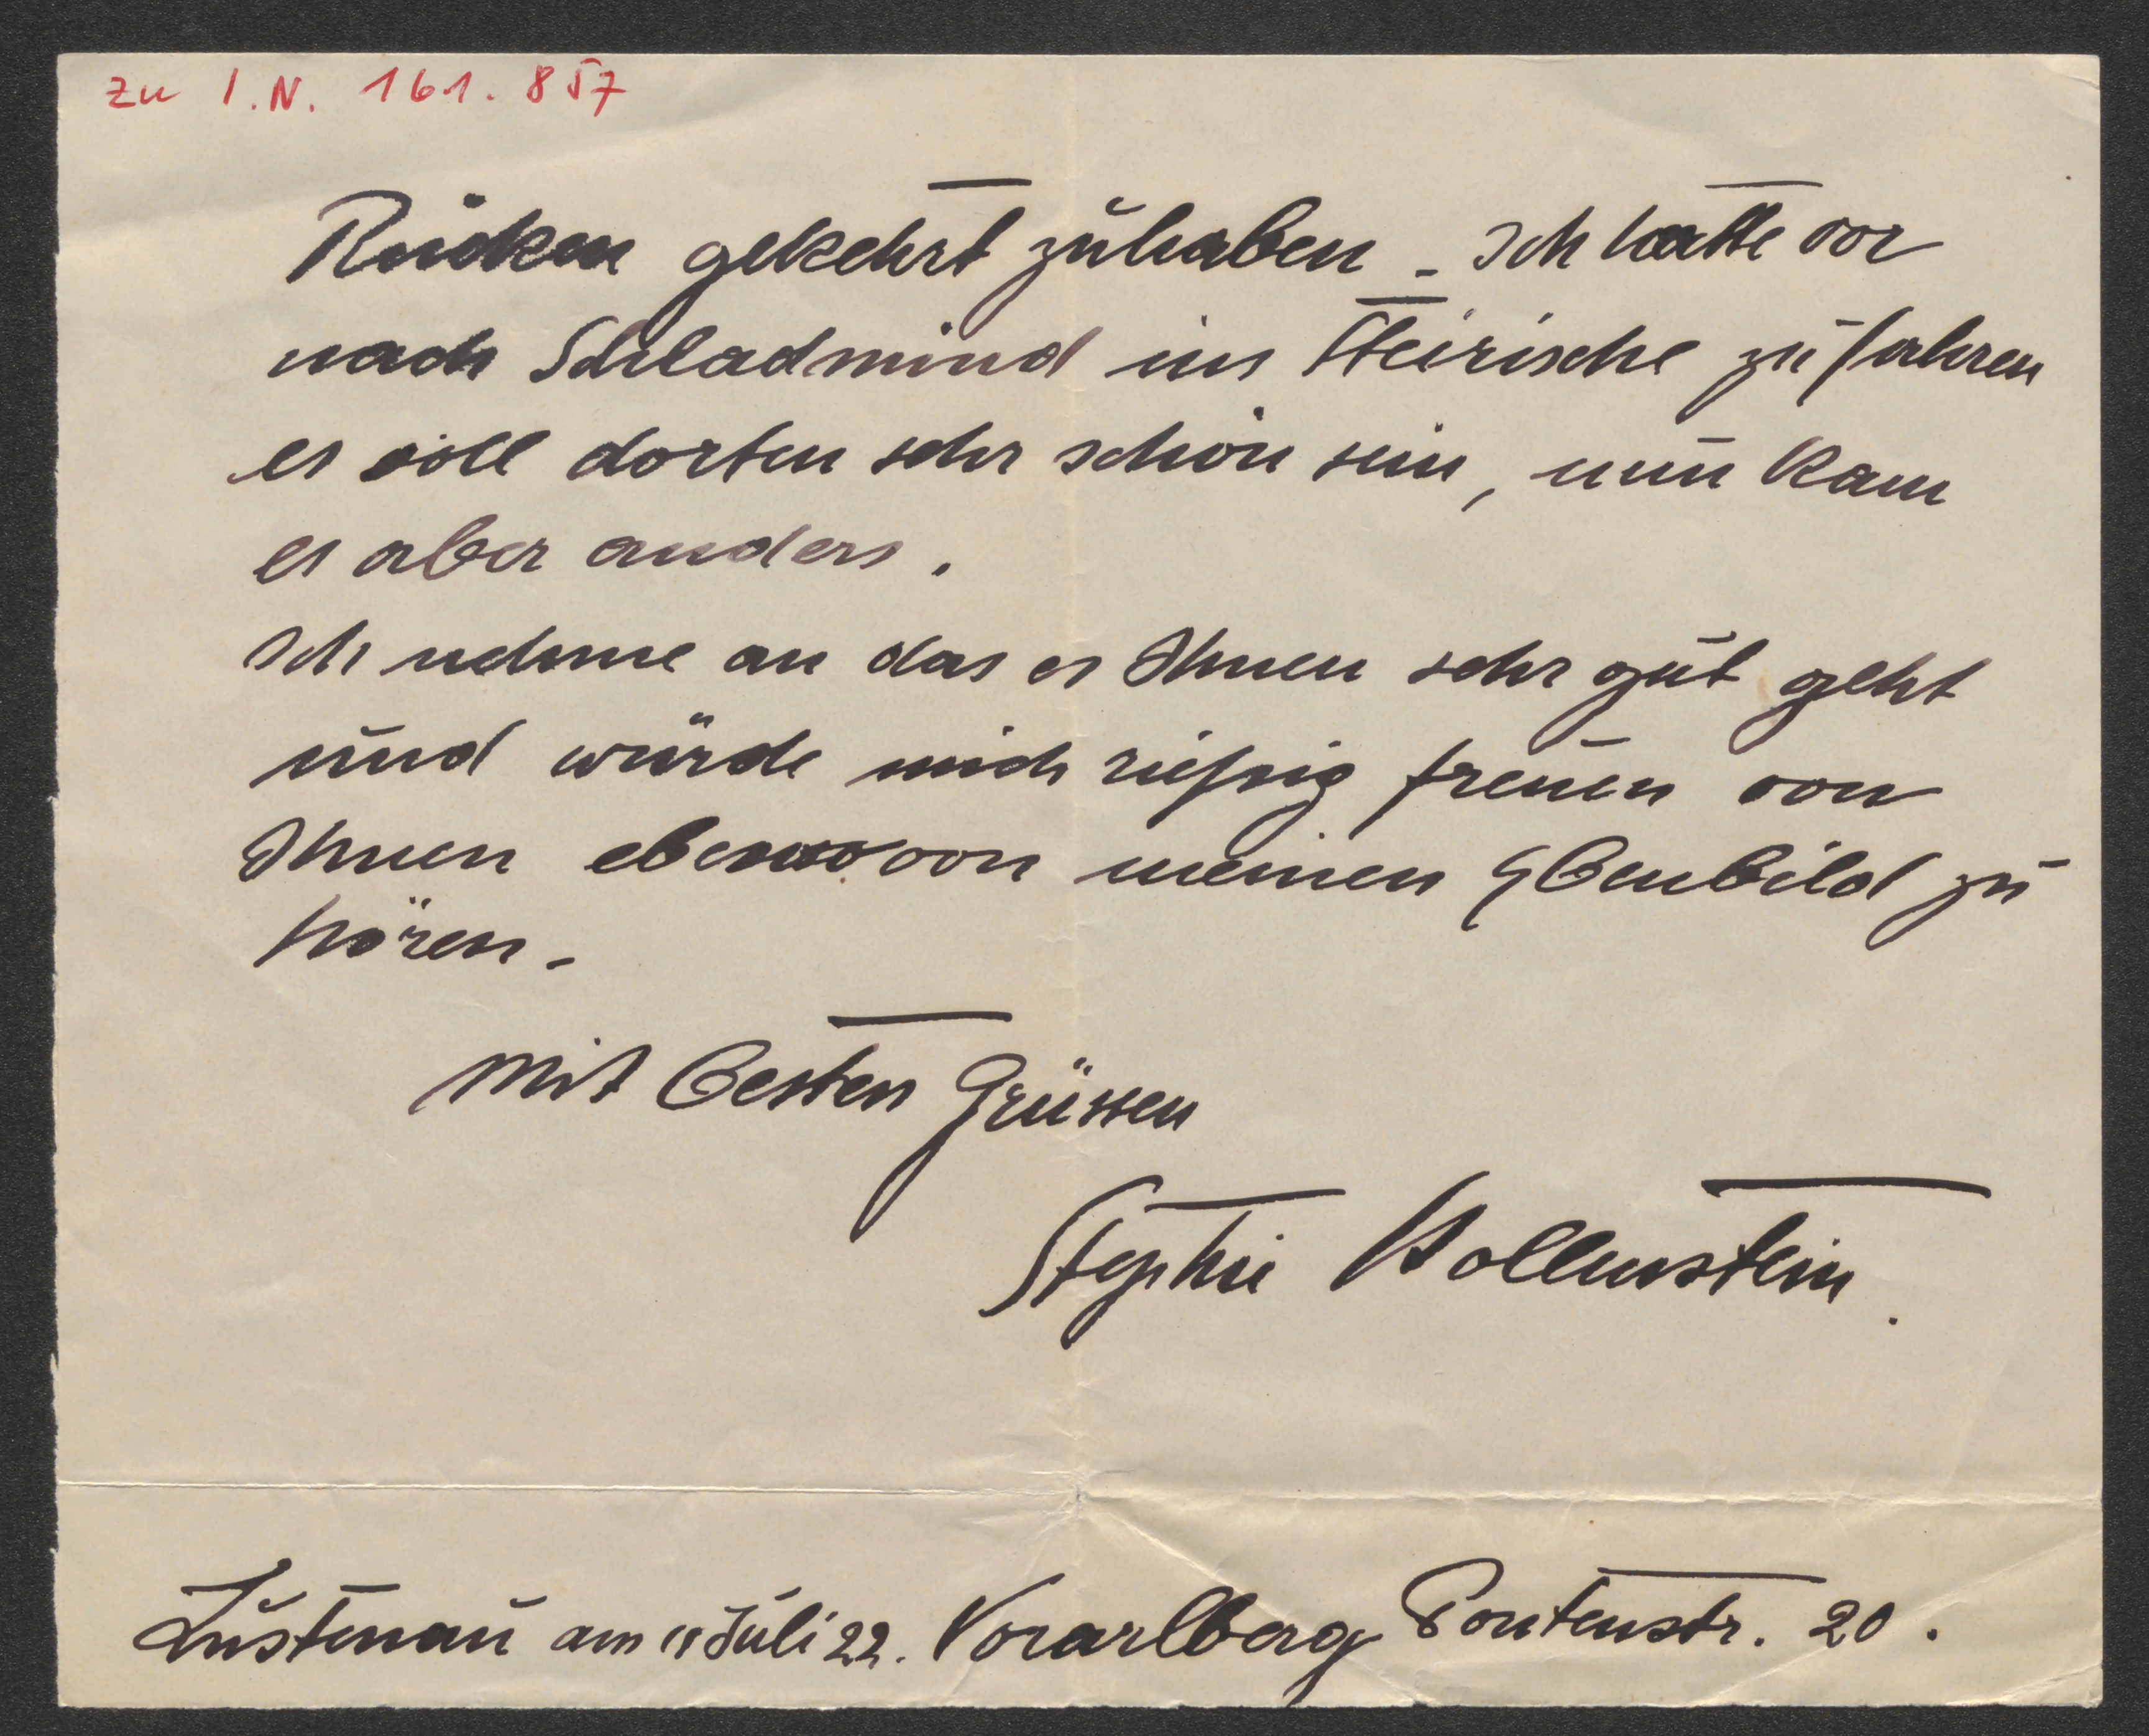 zu I.N. 161.857
Rücken gekehrt zuhaben - Ich hatte vor
nach Schladmind ins Steirische zu fahren
es soll dorten sehr schön sein, nun kam
es aber anders.
Ich nehme an das es Ihnen sehr gut geht
und würde mich rießig freuen von
Ihnen ebenso von meinen Ebenbild zu
hören -
Mit besten Grüssen
Stephi Hollenstein.
Lustenau am Juli 22. Vorarlberg Pontenstr. 20.